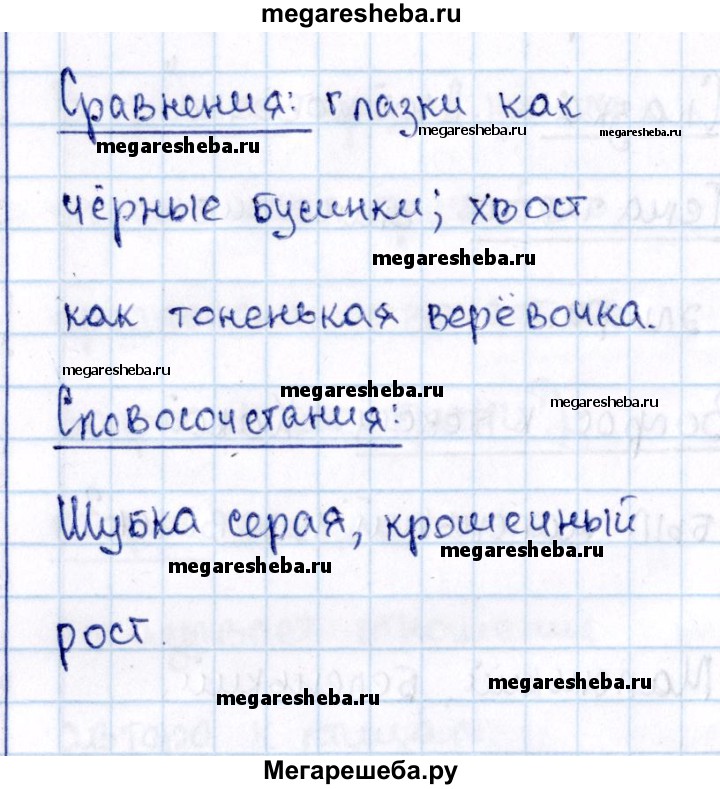 megaresheba.ru
Сравнения: глазки как
megaresheba.ru
megaresheba.ru
megaresheba.ru
чёрные бусинки; хвост
megaresheba.ru
как тоненькая верёвочка.
megaresheba.ru
megaresheba.ru
megaresheba.ru
Словосочетания:
Шубка серая, крошечный
megaresheba.ru
megaresheba.ru
рост.
megaresheba.ru
megaresheba.ru
Мегарешеба.ру